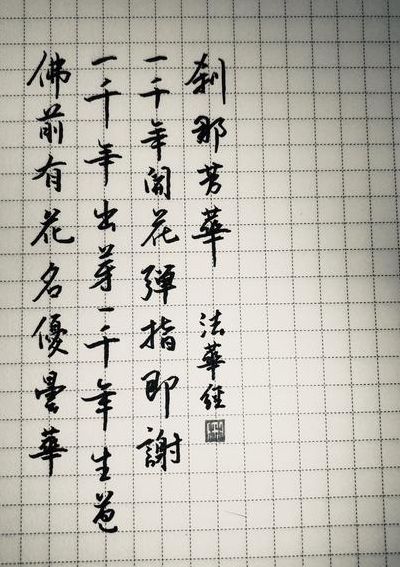 佛前有花名優曇華
一千年出芽一千年生苞
一千年開花彈指即謝
刹那芳華
法華經